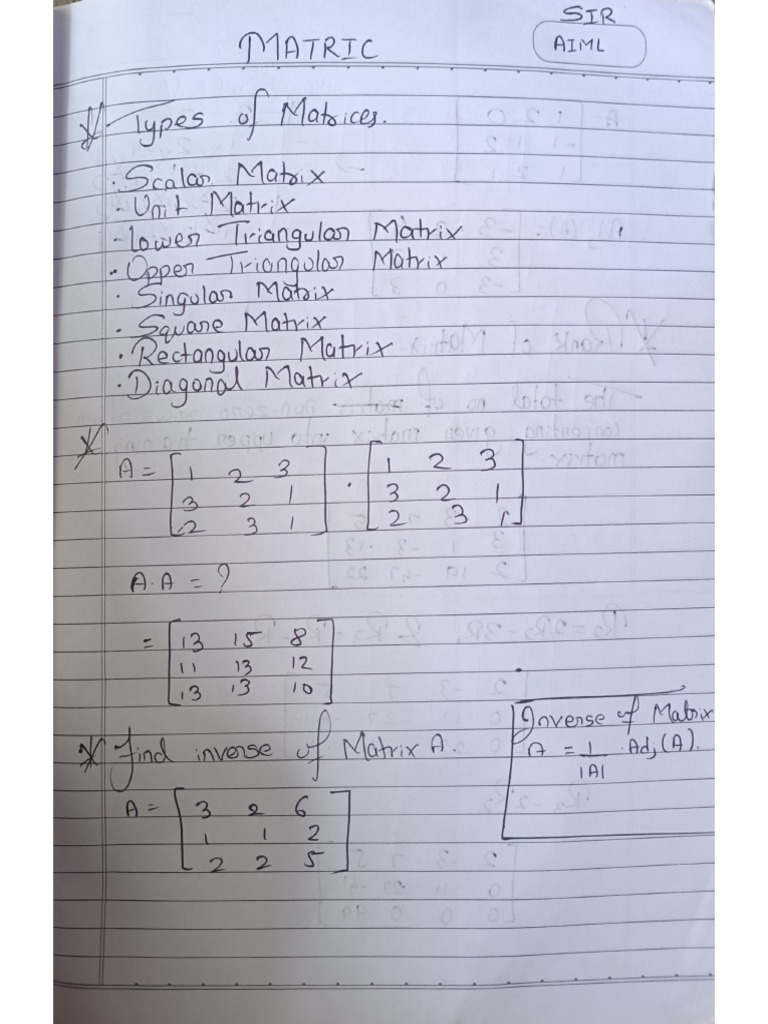 SIR
AIML
MATRIC
Types of Matrices.
· Scalar Matrix
· Unit Matrix
- Lower Triangular Matrix
· Upper Triangular Matrix
· Singular Matrix
· Square Matrix
· Rectangular Matrix
· Diagonal Matrix
A = [1 2 3] · [1 2 3]
[3 2 1] [3 2 1]
[2 3 1] [2 3 1]
A.A = ?
= [13 15 8]
[11 13 12]
[13 13 10]
Find inverse of Matrix A.
A = [3 2 6]
[1 1 2]
[2 2 5]
Inverse of Matrix
A = 1 . Adj(A).
|A|